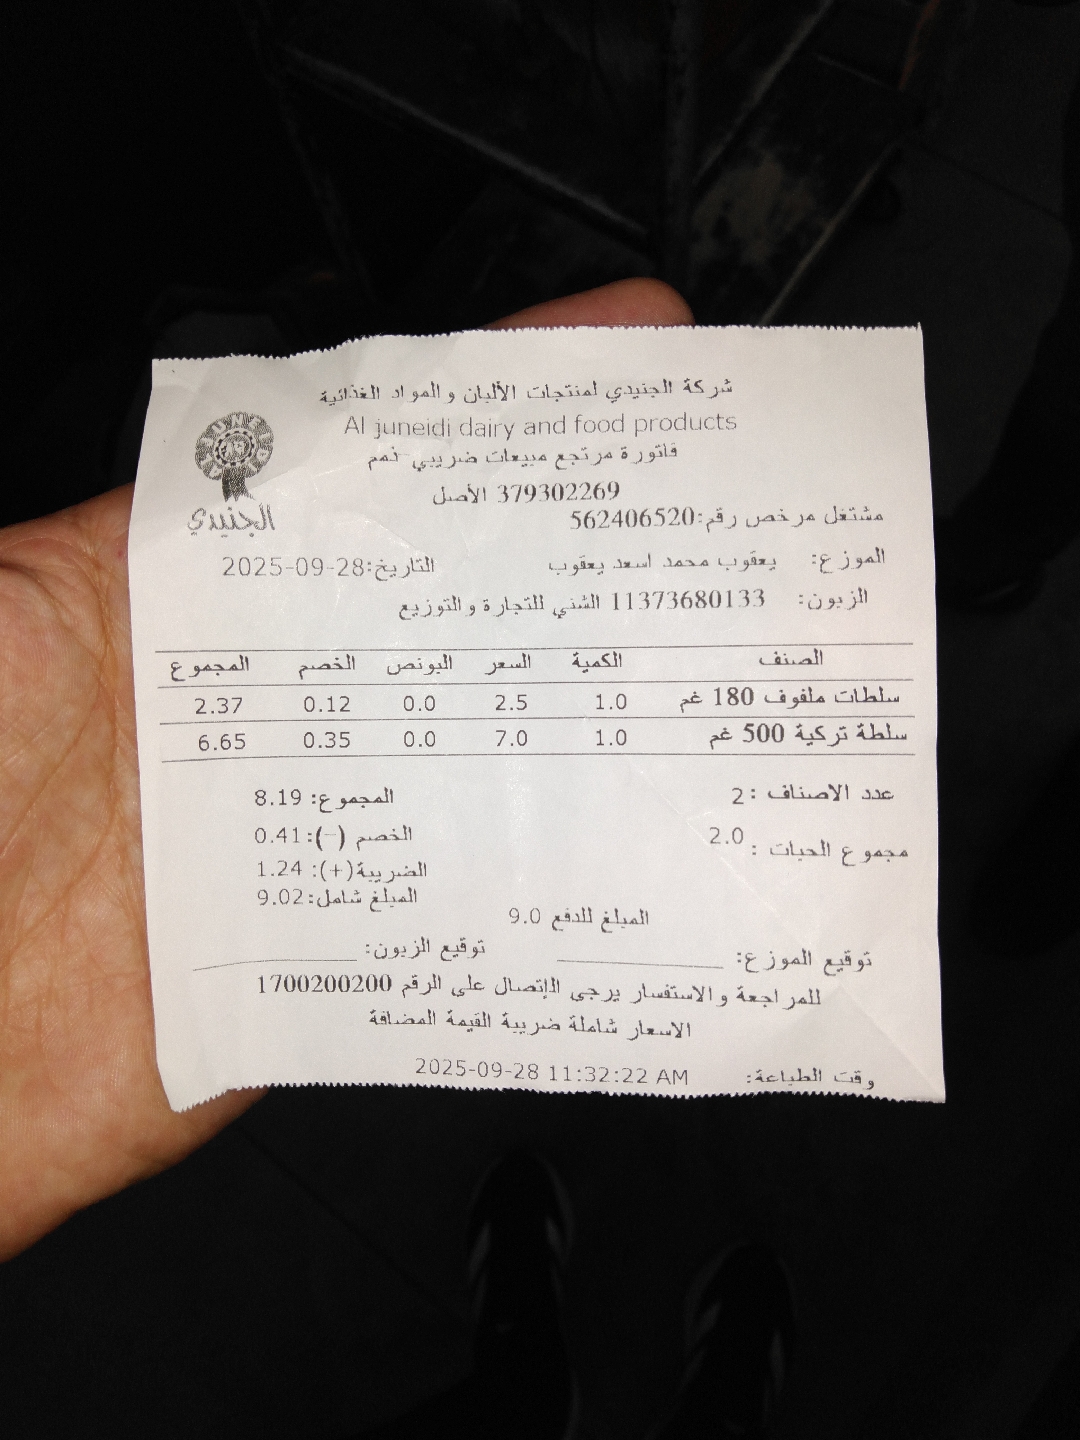 شركة الجنيدي لمنتجات الألبان والمواد الغذائية
Al juneidi dairy and food products
فاتورة مرتجع مبيعات ضريبي ذمم
379302269 الأصل
مشتغل مرخص رقم:562406520
الجنيدي
الموزع: يعقوب محمد اسعد يعقوب التاريخ:2025-09-28
الزبون: 11373680133 الشني للتجارة والتوزيع
الصنف الكمية السعر البونص الخصم المجموع
سلطات ملفوف 180 غم 1.0 2.5 0.0 0.12 2.37
سلطة تركية 500 غم 1.0 7.0 0.0 0.35 6.65
عدد الاصناف : 2 المجموع: 8.19
مجموع الحبات : 2.0 الخصم (-): 0.41
الضريبة(+): 1.24
المبلغ شامل: 9.02
المبلغ للدفع 9.0
توقيع الموزع: توقيع الزبون:
للمراجعة والاستفسار يرجى الإتصال على الرقم 1700200200
الاسعار شاملة ضريبة القيمة المضافة
وقت الطباعة: 2025-09-28 11:32:22 AM